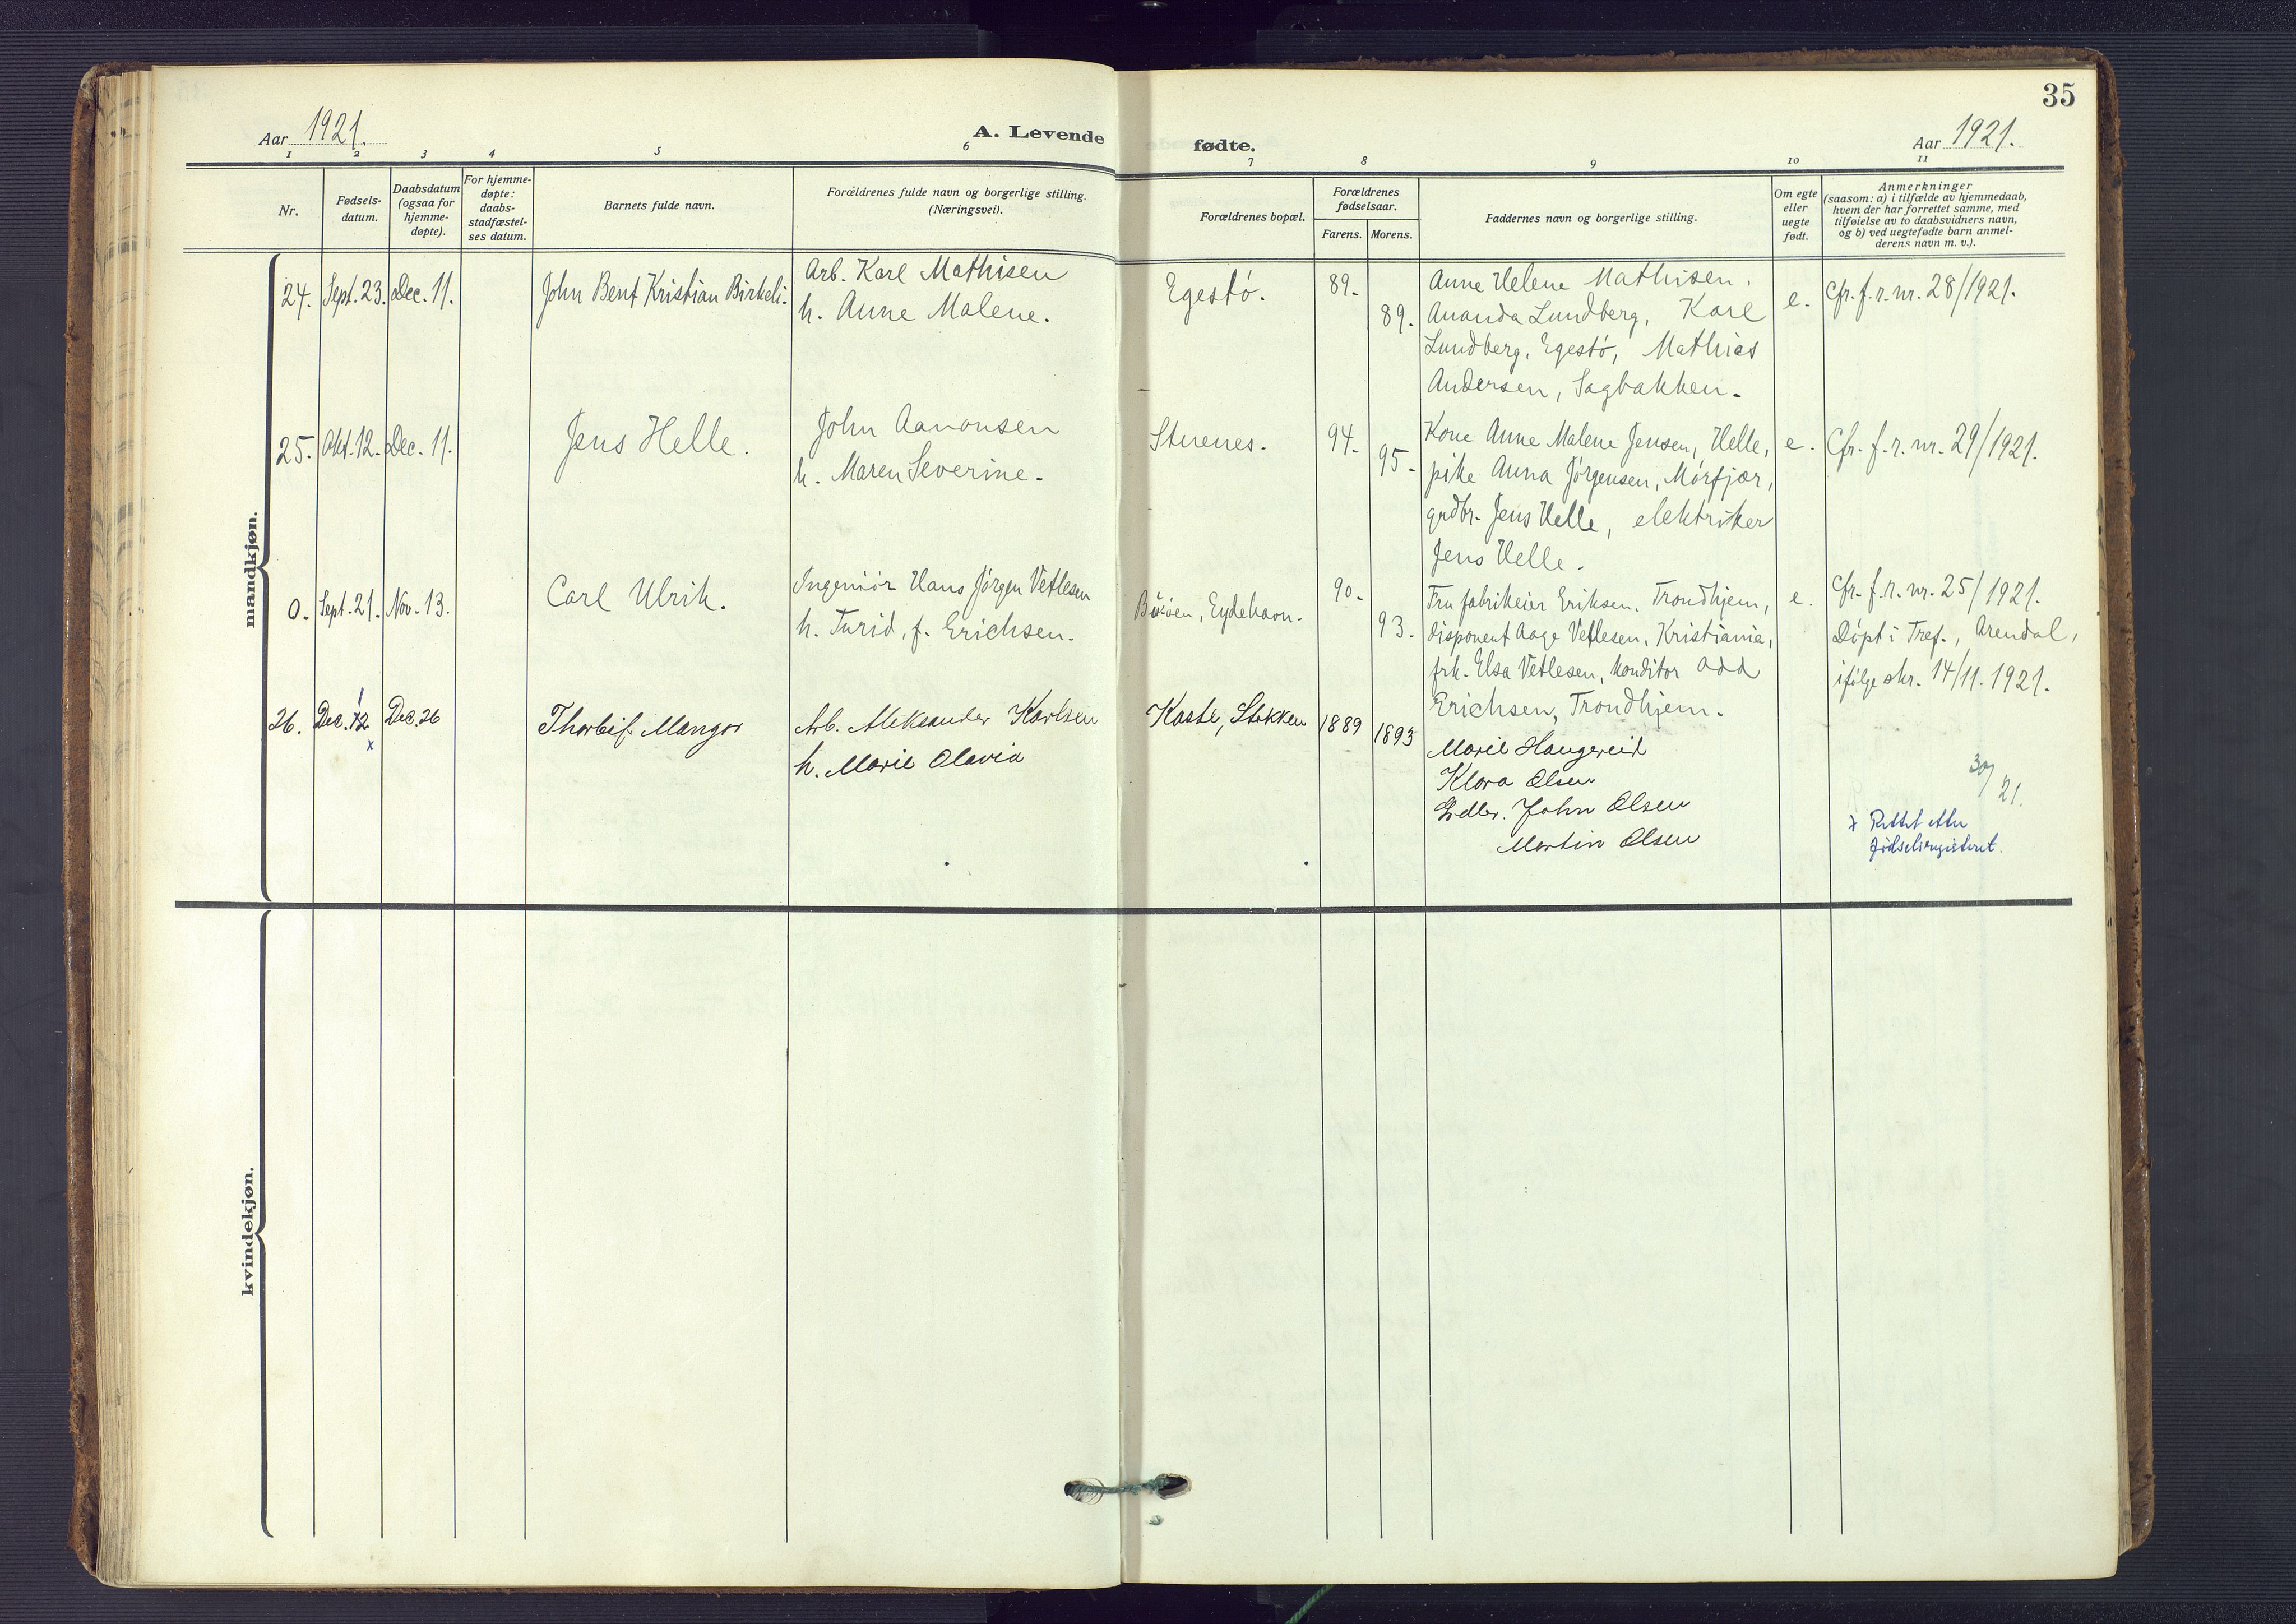 35
Aar 1921.
A. Levende
fødte.
Aar 1921.
1 2 3 4 5 6 7 8 9 10 11
Nr.
Fødsels-
datum.
Daabsdatum
(ogsaa for
hjemme-
døpte).
For hjemme-
døpte:
daabs-
stadfæstel-
ses datum.
Barnets fulde navn.
Forældrenes fulde navn og borgerlige stilling.
(Næringsvei).
Forældrenes bopæl.
Forældrenes
fødselsaar.
Farens. Morens.
Faddernes navn og borgerlige stilling.
Om egte
eller
uegte
født.
Anmerkninger
(saasom: a) i tilfælde av hjemmedaab,
hvem der har forrettet samme, med
tilføielse av to daabsvidners navn,
og b) ved uegtefødte barn anmel-
derens navn m. v.).
mandkjøn.
24. Sept. 23. Dec. 11. John Bent Kristian Birkeli.
Arb. Karl Mathisen
h. Anne Malene.
Egestø.
89.
89.
Anne Helene Mathisen.
Ananda Lundberg, Karl
Lundberg, Egestø, Mathias
Andersen, Sagbakken.
e.
Cfr. f. r. nr. 28/1921.
25. Okt. 12. Dec. 11. Jens Helle.
John Aanonsen
h. Maren Severine.
Stuenes.
94.
95.
Kone Anne Malene Jensen, Helle,
pike Anna Jørgensen, Mørfjær,
grdbr. Jens Helle, elektriker
Jens Helle.
e.
Cfr. f. r. nr. 29/1921.
0. Sept. 21. Nov. 13. Carl Ulrik.
Ingeniør Hans Jørgen Vetlesen
h. Turid, f. Erichsen.
Eydehavn.
90.
93.
Fru fabrikeier Eriksen, Trondhjem,
disponent Aage Vetlesen, Kristiania,
frk. Elsa Vetlesen, konditor Odd
Erichsen, Trondhjem.
e.
Cfr. f. r. nr. 25/1921.
Døpt i Tref., Arendal,
ifølge skr. 14/11. 1921.
26. Dec. 12 Dec. 26 Mangor
x
Arb. Aleksander Karlsen
h. Marie Olavia
Kaste, Stokken
1889
1893
Marie Haugereid
Klara Olsen
John Olsen
Martin Olsen
30/21.
x Rettet etter
fødselsregisteret.
kvindekjøn.